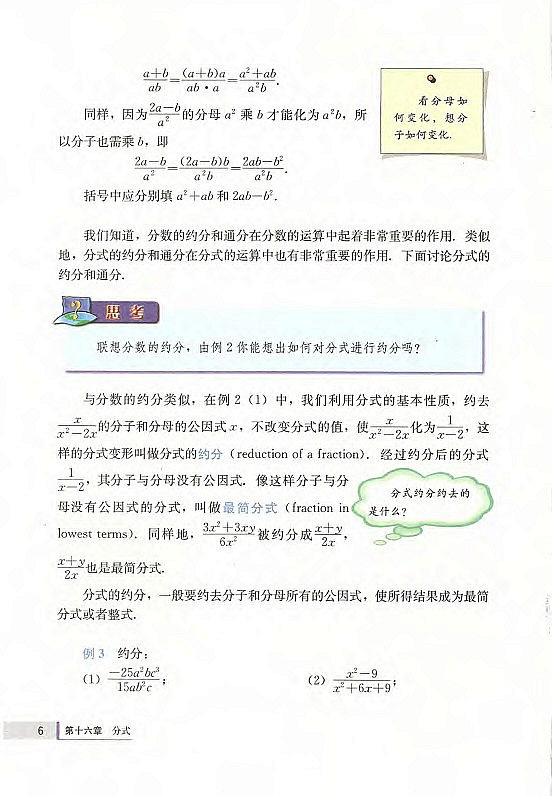 (a+b)/(ab)=((a+b)a)/(ab·a)=(a²+ab)/(a²b).
看分母如
何变化，想分
子如何变化.
同样，因为(2a−b)/a²的分母 a² 乘 b 才能化为 a²b，所
以分子也需乘 b，即
(2a−b)/a²=((2a−b)b)/(a²b)=(2ab−b²)/(a²b).
括号中应分别填 a²+ab 和 2ab−b².
我们知道，分数的约分和通分在分数的运算中起着非常重要的作用. 类似
地，分式的约分和通分在分式的运算中也有非常重要的作用. 下面讨论分式的
约分和通分.
? 思考
联想分数的约分，由例 2 你能想出如何对分式进行约分吗？
与分数的约分类似，在例 2（1）中，我们利用分式的基本性质，约去
x/(x²−2x)的分子和分母的公因式 x，不改变分式的值，使x/(x²−2x)化为1/(x−2)，这
样的分式变形叫做分式的约分（reduction of a fraction）. 经过约分后的分式
1/(x−2)，其分子与分母没有公因式. 像这样分子与分
母没有公因式的分式，叫做最简分式（fraction in
lowest terms）. 同样地，(3x²+3xy)/(6x²)被约分成(x+y)/(2x)，
(x+y)/(2x)也是最简分式.
分式约分约去的
是什么？
分式的约分，一般要约去分子和分母所有的公因式，使所得结果成为最简
分式或者整式.
例 3 约分：
(1) (−25a²bc³)/(15ab²c)； (2) (x²−9)/(x²+6x+9)；
6 第十六章 分式